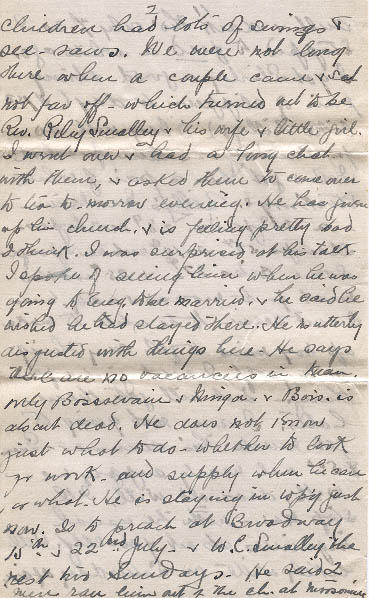 children had lots of swings &
see saws. We were not long
there when a couple came & sat
not far off which turned out to be
Rev. Riley Smalley & his wife & little girl.
I went over & had a long chat
with them, & asked them to come over
to tea to-morrow evening. He has given
up his church. & is feeling pretty bad
I think. I was surprised at his talk
I spoke of seeing him when he was
going to be married. & he said he
wished he had stayed there. He is utterly
disgusted with things here. He says
there are no vacancies in Man.
only Boissevain & Ninga. & Bois. is
about dead. He does not know
just what to do - whether to look
for work - and supply when he can
, or what. He is staying in w'p'g just
now. Is to preach at Broadway
15th & 22nd July. & W.C. Smalley the
next two Sundays. He said 2
men ran him out of the ch. at